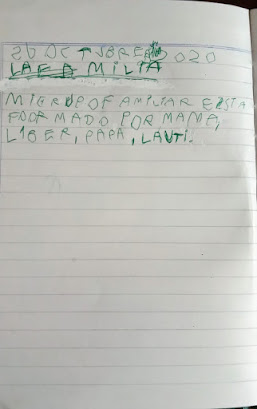 26 OCTUBRE 2020
LA FAMILIA
MI GRUPO FAMILIAR ESTA
FORMADO POR MAMA,
LIBER, PAPA, LAUTI.